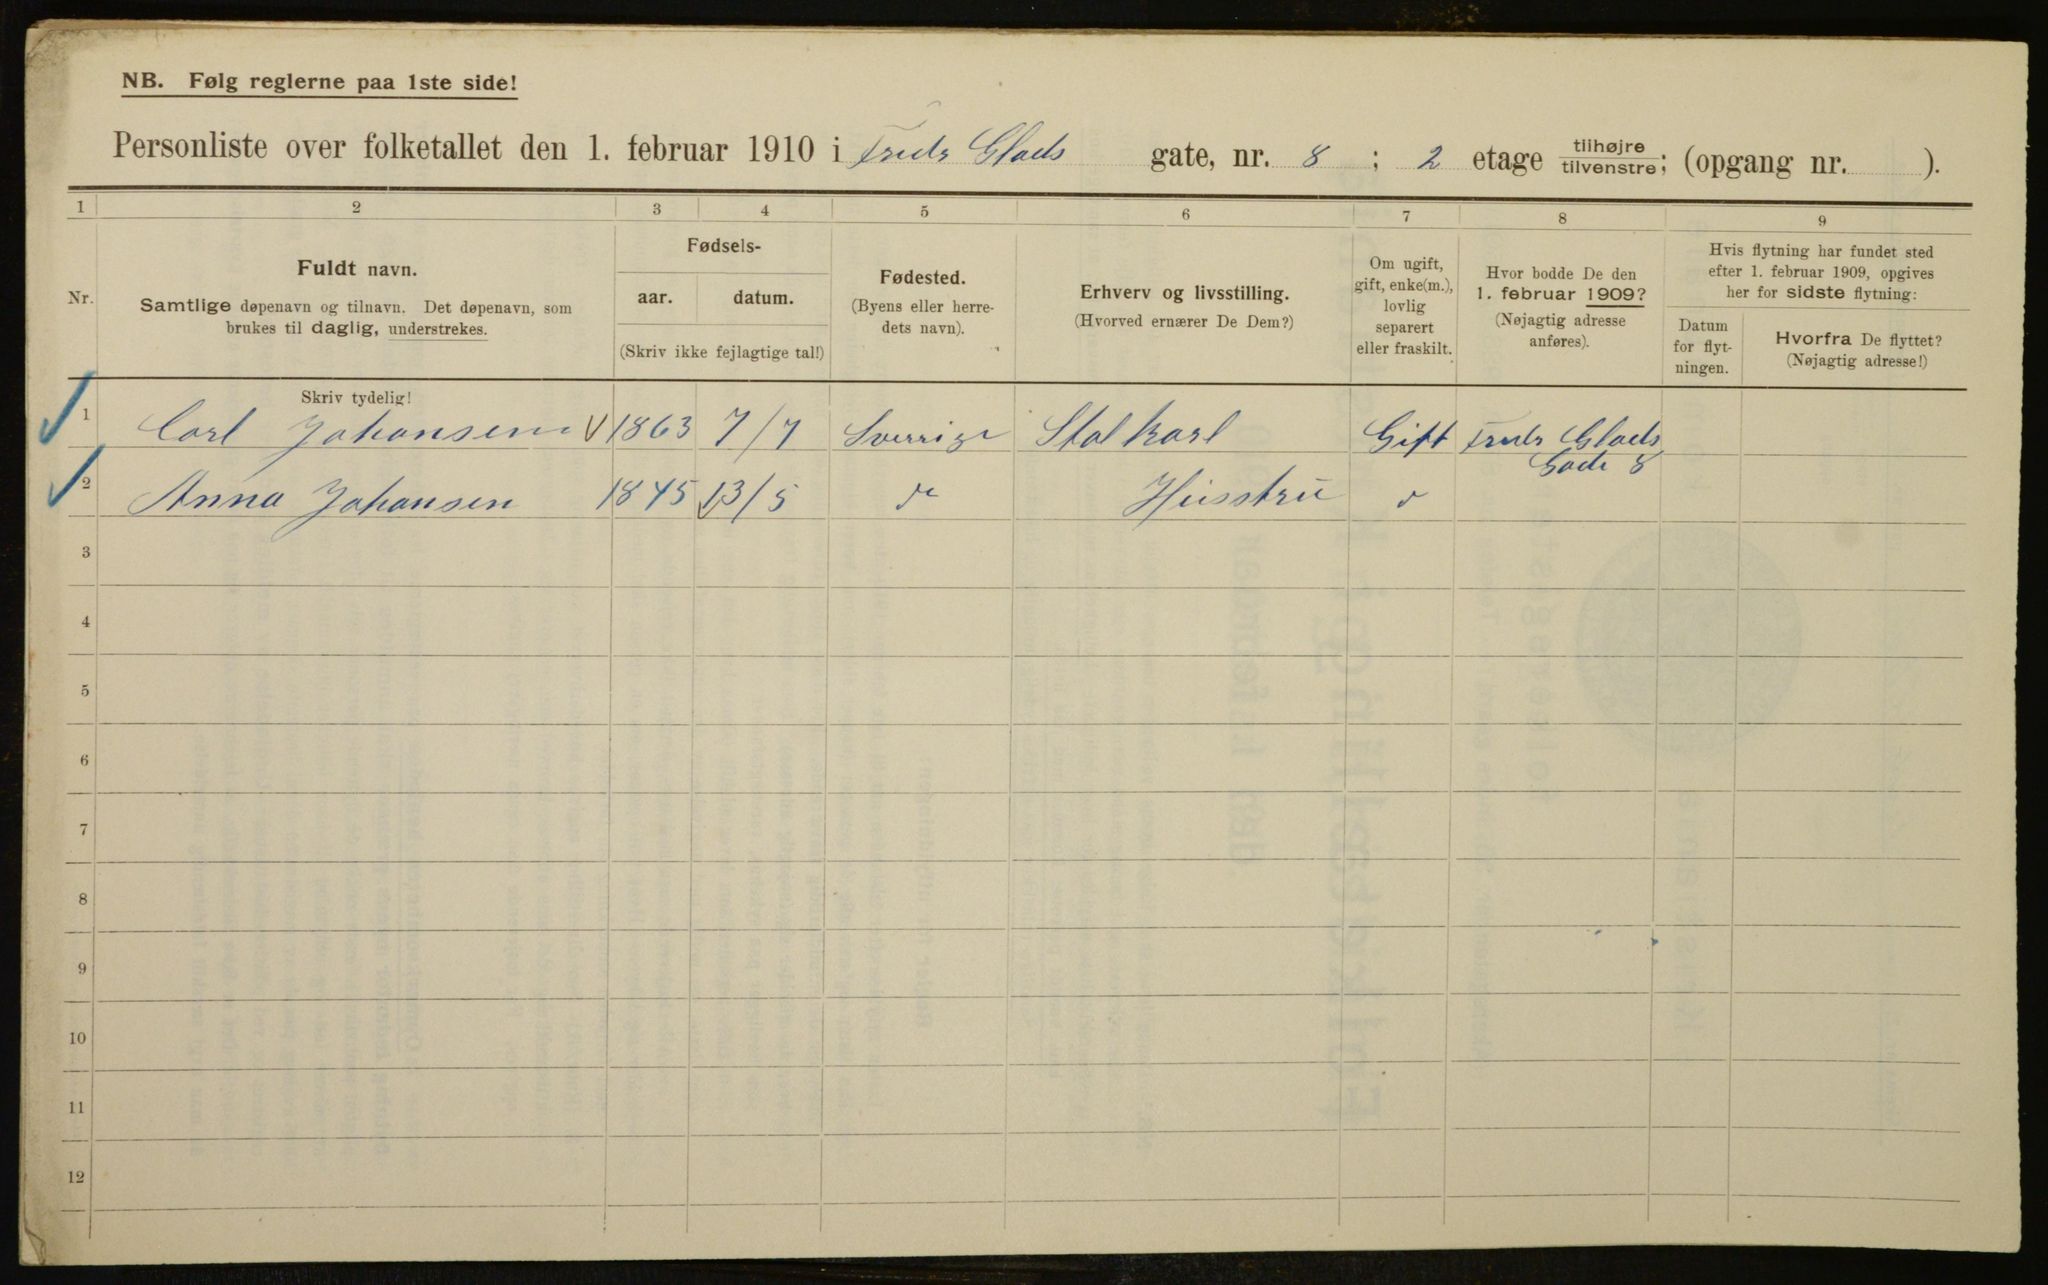 NB. Følg reglerne paa 1ste side!
Personliste over folketallet den 1. februar 1910 i Fredr Glads gate, nr. 8 ; 2 etage tilhøjre tilvenstre; (opgang nr. ).
1 2 3 4 5 6 7 8 9
Nr.
Fuldt navn.
Samtlige døpenavn og tilnavn. Det døpenavn, som
brukes til daglig, understrekes.
Fødsels-
aar. datum.
(Skriv ikke fejlagtige tal!)
Fødested.
(Byens eller herre-
dets navn).
Erhverv og livsstilling.
(Hvorved ernærer De Dem?)
Om ugift,
gift, enke(m.),
lovlig
separert
eller fraskilt.
Hvor bodde De den
1. februar 1909?
(Nøjagtig adresse
anføres).
Hvis flytning har fundet sted
efter 1. februar 1909, opgives
her for sidste flytning:
Datum
for flyt-
ningen.
Hvorfra De flyttet?
(Nøjagtig adresse!)
Skriv tydelig!
1 Carl Johansen 1863 7/7 Sverrige Stalkarl Gift Fredr Glads
Gade 8
2 Anna Johansen 1845 13/5 Husstru
3
4
5
6
7
8
9
10
11
12